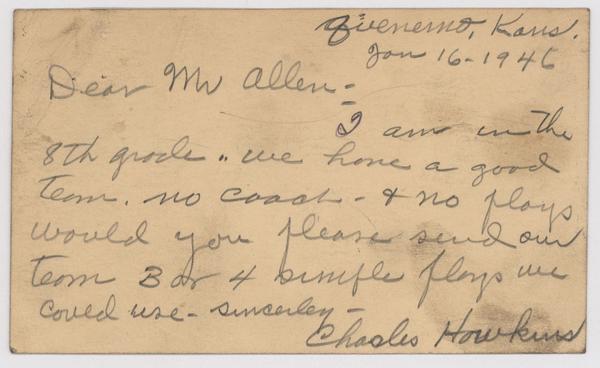 Quenemo, Kans.
Jan 16-1946
Dear Mr Allen -
I am in the
8th grade .. we have a good
team. no coach - & no plays
would you please send our
team 3 or 4 simple plays we
could use - sincerley -
Charles Hawkins